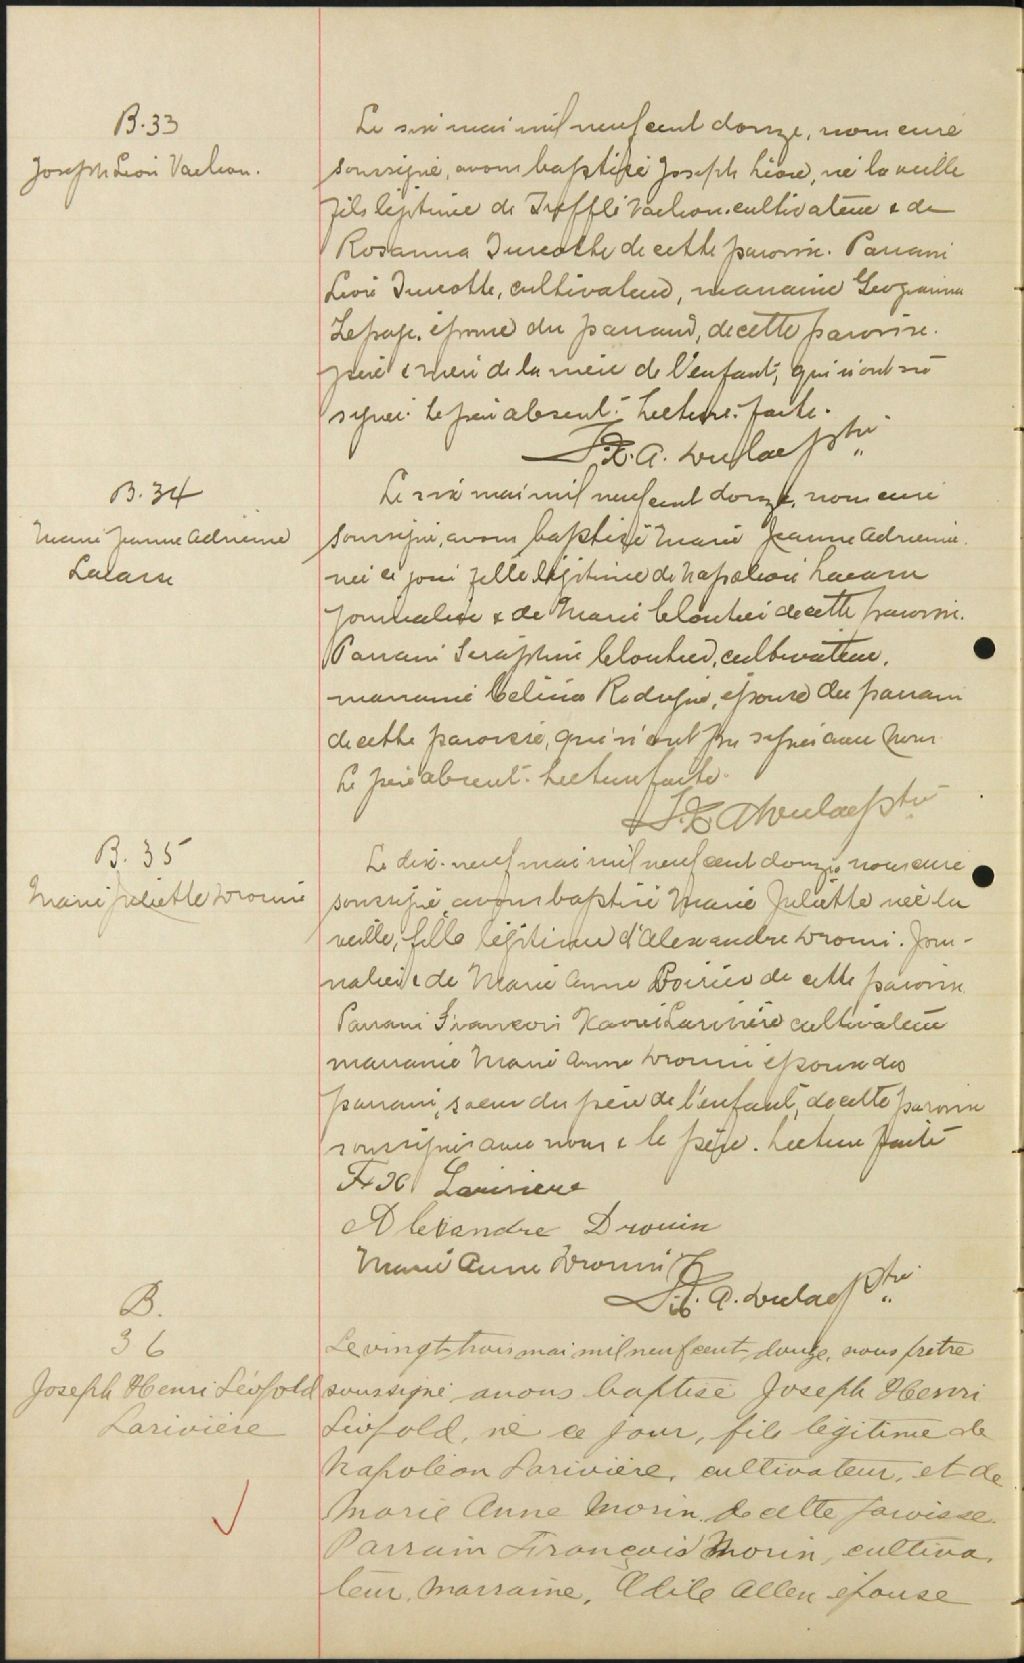 B.33
Joseph Léon Vachon.
Le six mai mil neuf cent douze, nous curé
soussigné, avons baptisé Joseph Léon, né la veille
fils légitime de Trefflé Vachon cultivateur & de
Rosanna Turcotte de cette paroisse. Parrain
Léon Turcotte, cultivateur, marraine Georgianna
Lepage, épouse du parrain, de cette paroisse.
père & mère de la mère de l'enfant, qui n'ont su
signer. Le père absent. Lecture faite.
F.X. A. ptre
B.34
Marie Jeanne Adrienne
Lacasse
Le six mai mil neuf cent douze, nous curé
soussigné, avons baptisé Marie Jeanne Adrienne.
née ce jour fille légitime de Napoléon Lacasse
journalier & de Marie Cloutier de cette paroisse.
Parrain Séraphin Cloutier, cultivateur,
marraine Célina Rodrigue, épouse du parrain
de cette paroisse, qui n'ont pu signer avec nous
Le père absent. Lecture faite.
F.X. A. ptre
B. 35
Marie Juliette Drouin
Le dix-neuf mai mil neuf cent douze, nous curé
soussigné, avons baptisé Marie Juliette née la
veille, fille légitime d'Alexandre Drouin. Jour-
nalier & de Marie Anne Poirier de cette paroisse
Parrain François Xavier Larivière cultivateur
marraine Marie Anne Drouin épouse du
parrain, soeur du père de l'enfant, de cette paroisse
soussignés avec nous & le père. Lecture faite
F X Lariviere
Alexandre Drouin
Marie Anne Drouin
F.X. A. ptre
B.
36
Joseph Henri Léopold
Larivière
Le vingt-trois mai mil neuf cent douze, nous prêtre
soussigné avons baptisé Joseph Henri
Léopold, né ce jour, fils légitime de
Napoléon Larivière, cultivateur, et de
Marie Anne Morin de cette paroisse.
Parrain François Morin, cultiva-
teur, Marraine, Odile Allen épouse